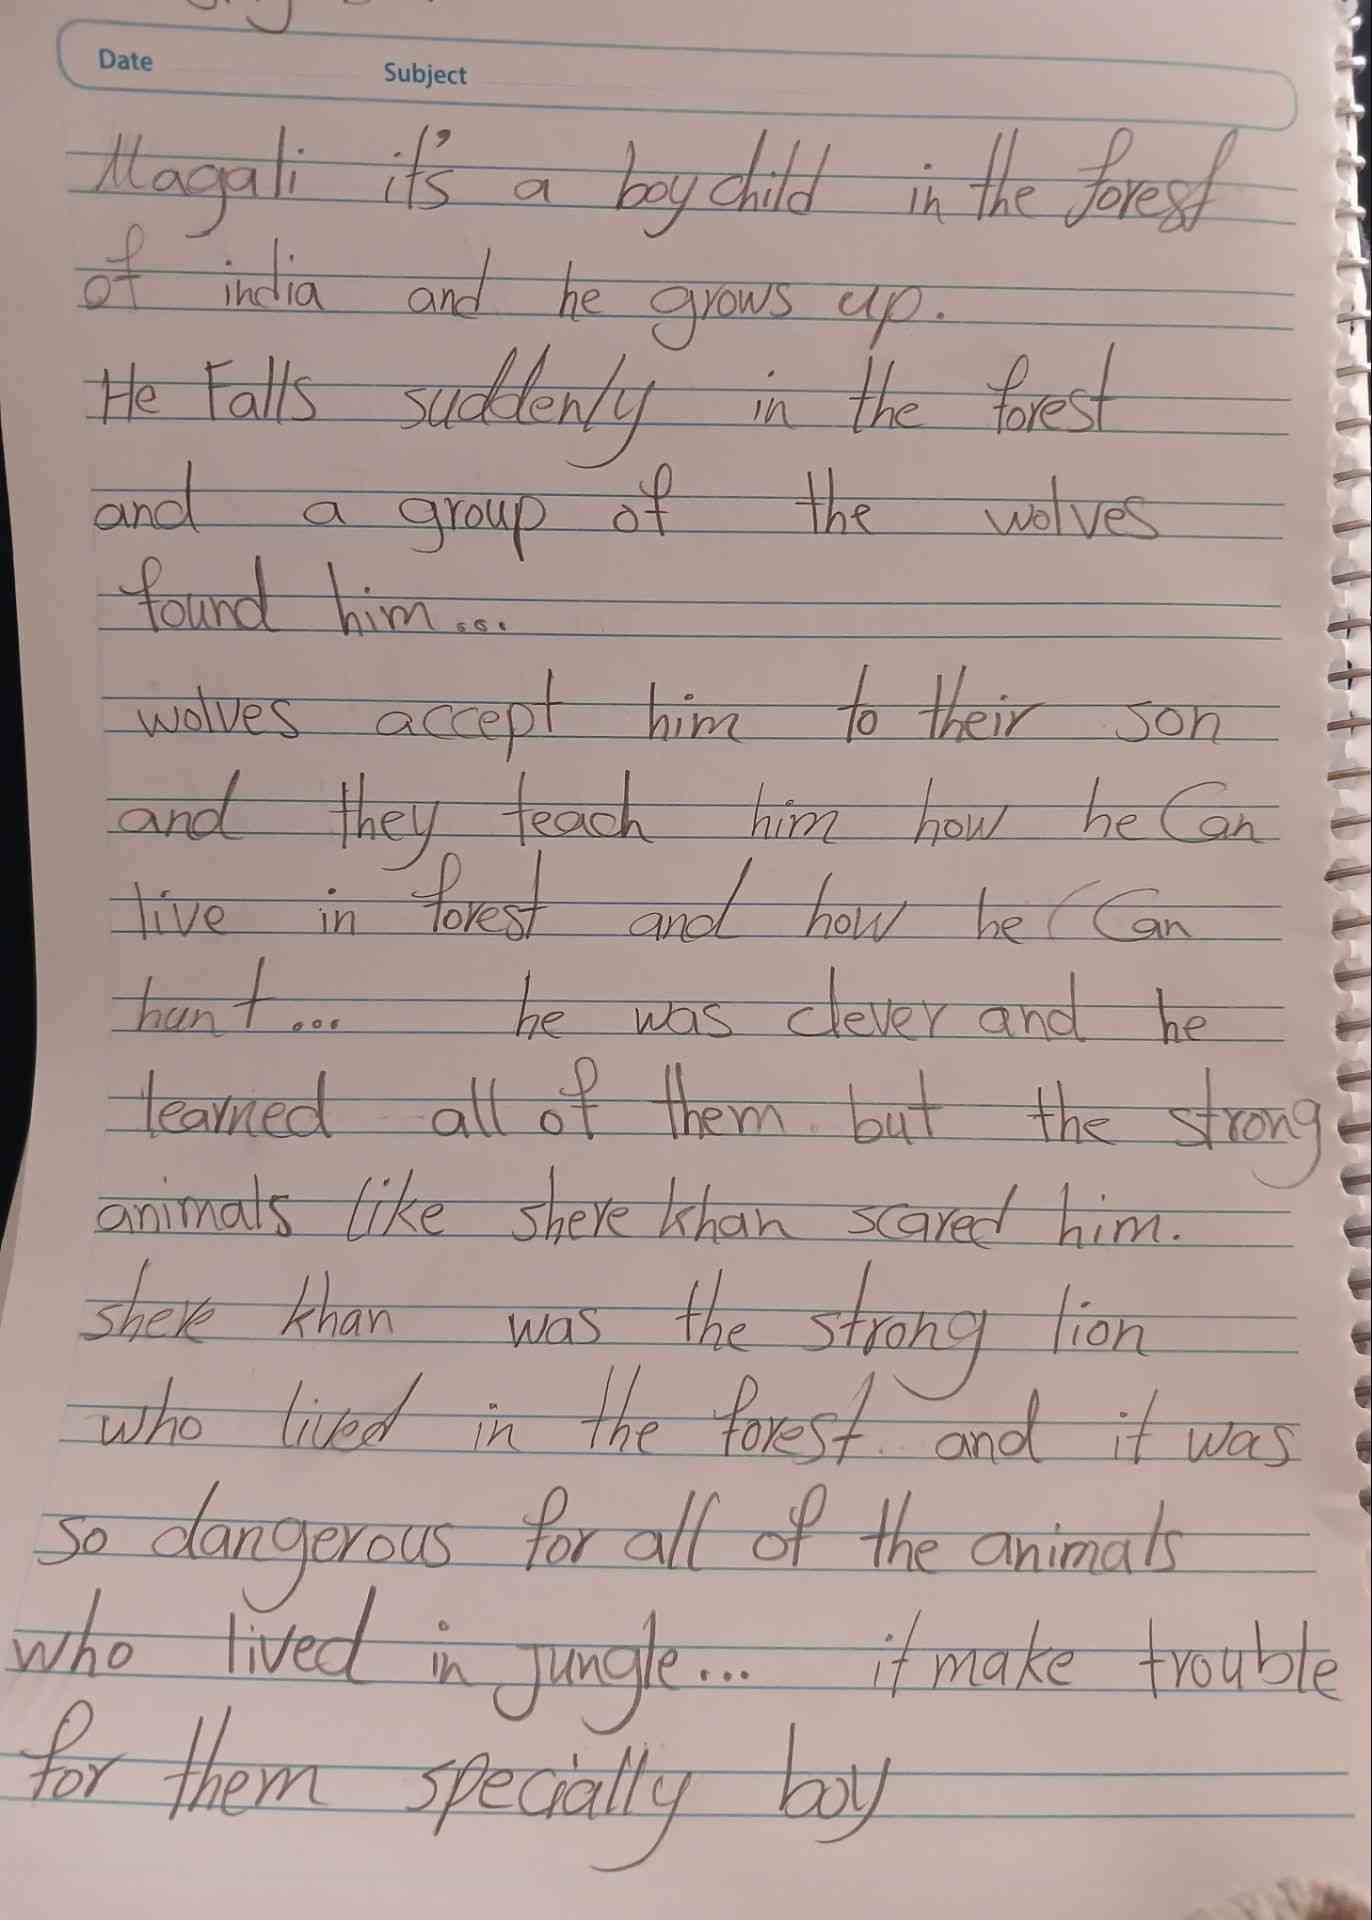 Date Subject
Magali it's a boy child in the forest
of india and he grows up.
He Falls suddenly in the forest
and a group of the wolves
found him...
wolves accept him to their son
and they teach him how he Can
live in forest and how he Can
hunt... he was clever and he
learned all of them but the strong
animals like shere khan scared him.
shere khan was the strong lion
who lived in the forest and it was
so dangerous for all of the animals
who lived in jungle... it make trouble
for them specially boy